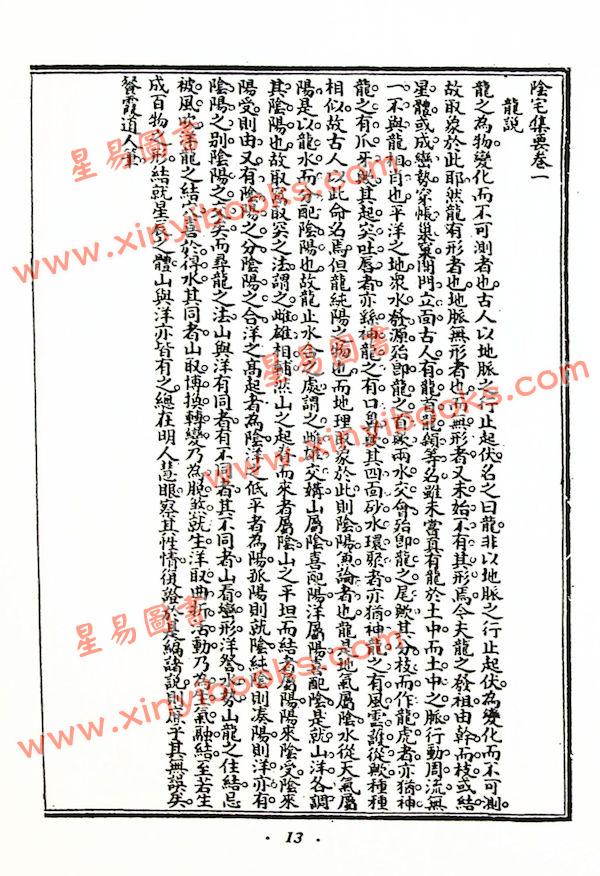 陰宅集要卷一
龍說
龍之為物變化而不可測者也古人以地脈之行止起伏名之曰龍非以地脈之行止起伏為變化而不可測
故取象於此耶然龍有形者也地脈無形者也而無形者又未始不有其形焉今夫龍之發祖由幹而枝或結
星體或成巒勢穿帳過峽開門立面古人有龍首龍頷等名雖未嘗真有龍於土中而土中之脈行動周流無
一不與龍相肖也平洋之地眾水發源殆即龍之首歟兩水交會殆即龍之尾歟其分枝而作龍虎者亦猶神
龍之有爪牙歟其起突吐唇者亦猶神龍之有口鼻歟其四面砂水環聚者亦猶神龍之有風雲護從歟種種
相似故古人以此命名焉但龍純陽之物也而地理取象於此則陰陽宜論者也龍是地氣屬陰水從天氣屬
陽是以龍水而分配陰陽也故龍止水合之處謂之雌雄交媾山屬陰喜配陽洋屬陽喜配陰是就山洋各調
其陰陽也故取窩取突之法謂之雌雄相輔然山之起脊而來者屬陰山之平坦而結者屬陽陽來陰受陰來
陽受則由又有陰陽之分陰陽之合洋之高起者為陰洋之低平者為陽孤陽則就陰純陰則湊陽則洋亦有
陰陽之別陰陽之交矣而尋龍之法山與洋有同者有不同者其不同者山看巒形洋察水勢山龍之住結忌
被風吹洋龍之結穴喜於得水其同者山取博換轉變乃為脫煞就生洋取曲折活動乃為生氣融結至若生
成百物之形結就星辰之體山與洋亦皆有之總在明人慧眼察其性情後證於其編諸說則庶乎其無誤矣
餐霞道人筆
· 13 ·
星易圖書
www.xinyibooks.com
星易圖書
www.xinyibooks.com
星易圖書
www.xinyibooks.com